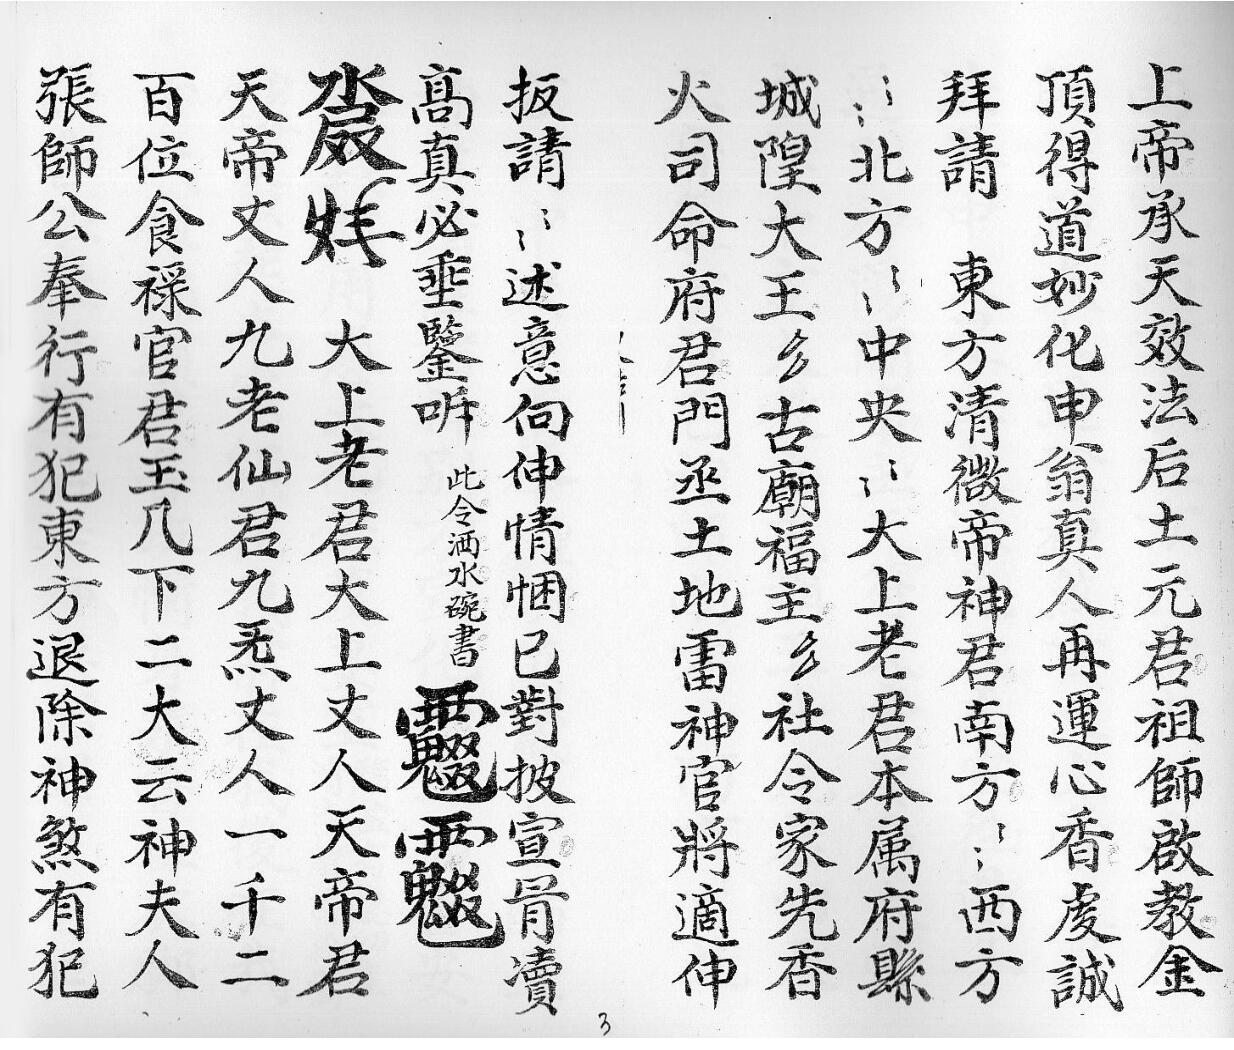 上帝承天效法后土元君祖師啟教金
頂得道妙化申翁真人再運心香虔誠
拜請　東方清微帝神君南方〻西方
〻北方〻中央〻大上老君本属府縣
城隍大王 古廟福主 社令家先香
火司命府君門丞土地雷神官將適伸
扳請〻述意向伸情悃已對披宣骨瀆
高真必垂鑒听 此令洒水碗書
大上老君大上丈人天帝君
天帝丈人九老仙君九炁丈人一千二
百位食祿官君玉几下二大云神夫人
張師公奉行有犯東方退除神煞有犯
3